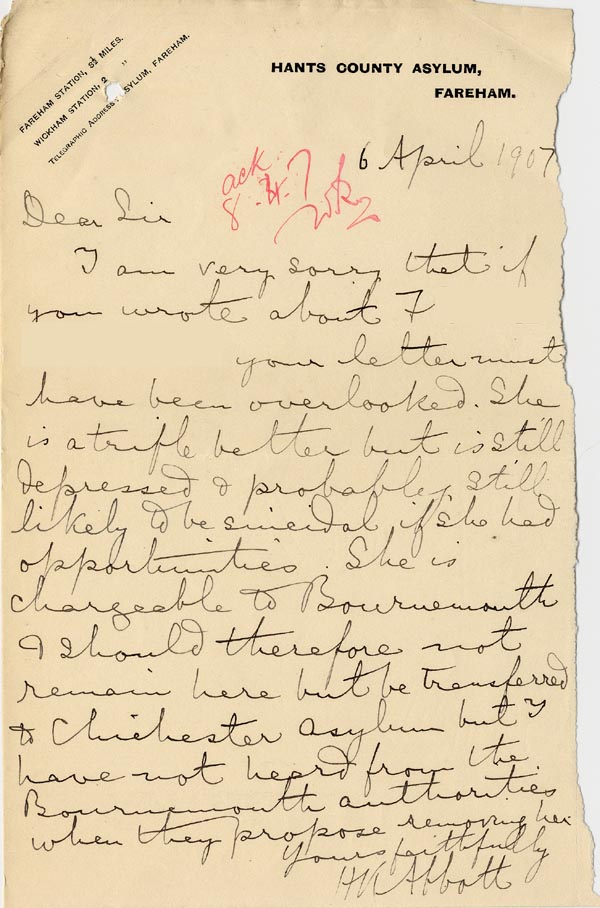 FAREHAM STATION, 3½ MILES.
WICKHAM STATION, 2 "
TELEGRAPHIC ADDRESS ASYLUM, FAREHAM.
HANTS COUNTY ASYLUM,
FAREHAM.
6 April 1907
ack
8.4.7
Dear Sir
I am very sorry that if
you wrote about F
your letter must
have been overlooked. She
is a trifle better but is still
depressed & probably still
likely to be suicidal if she had
opportunities. She is
chargeable to Bournemouth
& should therefore not
remain here but be transferred
to Chichester asylum but I
have not heard from the
Bournemouth authorities
when they propose removing her
Yours faithfully
HK Abbott